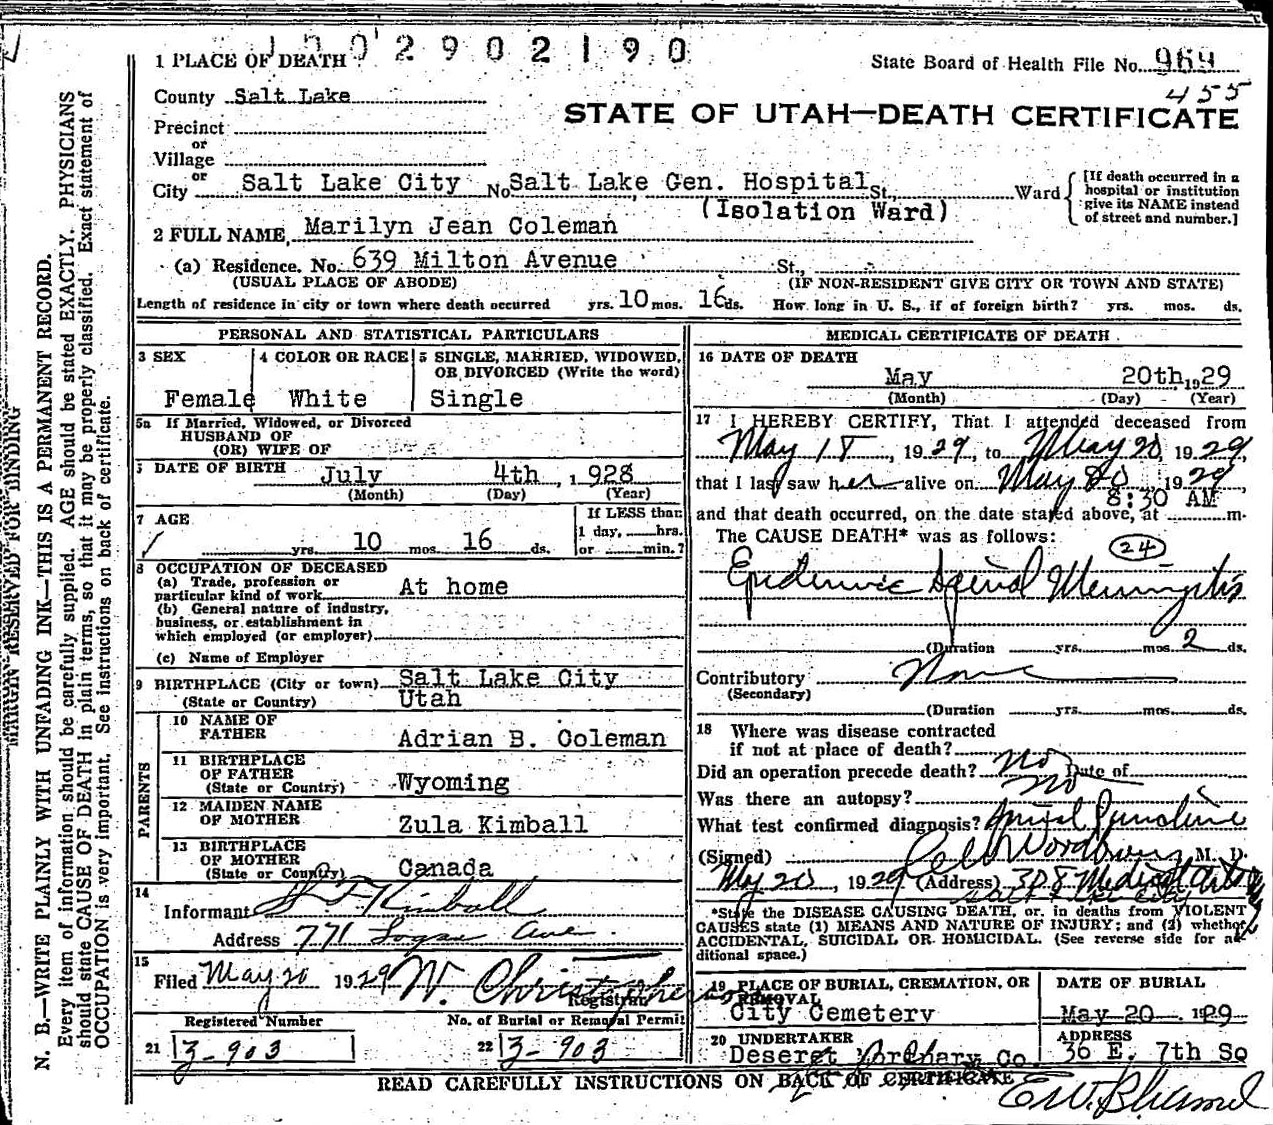 2902190
1 PLACE OF DEATH
State Board of Health File No. 969
455
County Salt Lake
STATE OF UTAH—DEATH CERTIFICATE
Precinct
or
Village
or
City Salt Lake City No. Salt Lake Gen. Hospital St., Ward
[If death occurred in a hospital or institution give its NAME instead of street and number.]
(Isolation Ward)
2 FULL NAME, Marilyn Jean Coleman
(a) Residence. No. 639 Milton Avenue St.,
(USUAL PLACE OF ABODE) (IF NON-RESIDENT GIVE CITY OR TOWN AND STATE)
Length of residence in city or town where death occurred yrs. 10 mos. 16 ds. How long in U. S., if of foreign birth? yrs. mos. ds.
PERSONAL AND STATISTICAL PARTICULARS
3 SEX
Female
4 COLOR OR RACE
White
5 SINGLE, MARRIED, WIDOWED, OR DIVORCED (Write the word)
Single
5a If Married, Widowed, or Divorced
HUSBAND OF
(OR) WIFE OF
DATE OF BIRTH July 4th, 1928
(Month) (Day) (Year)
7 AGE
yrs. 10 mos. 16 ds.
If LESS than
1 day, hrs.
or min.?
8 OCCUPATION OF DECEASED
(a) Trade, profession or
particular kind of work At home
(b) General nature of industry,
business, or establishment in
which employed (or employer)
(c) Name of Employer
9 BIRTHPLACE (City or town) Salt Lake City
(State or Country) Utah
PARENTS
10 NAME OF
FATHER
Adrian B. Coleman
11 BIRTHPLACE
OF FATHER
(State or Country) Wyoming
12 MAIDEN NAME
OF MOTHER
Zula Kimball
13 BIRTHPLACE
OF MOTHER
(State or Country) Canada
14
Informant Kimball
Address 771 Logan Ave.
15
Filed May 20 1929 W. Christopherson
Registrar
Registered Number
21 3-903
No. of Burial or Removal Permit
22 3-903
MEDICAL CERTIFICATE OF DEATH
16 DATE OF DEATH
May 20th, 1929
(Month) (Day) (Year)
17 I HEREBY CERTIFY, That I attended deceased from
May 18, 1929, to May 20 1929,
that I last saw her alive on May 20 1929,
8:30 AM
and that death occurred, on the date stated above, at m.
The CAUSE DEATH* was as follows:
24
Epidemic Spinal Meningitis
(Duration yrs. mos. 2 ds.
Contributory None
(Secondary)
(Duration yrs. mos. ds.
18 Where was disease contracted
if not at place of death?
Did an operation precede death? No Date of
Was there an autopsy? No
What test confirmed diagnosis? Spinal Puncture
(Signed) Woodbury M. D.
May 20, 1929 (Address) 308 Medical Arts
Salt Lake City
*State the DISEASE CAUSING DEATH, or, in deaths from VIOLENT
CAUSES state (1) MEANS AND NATURE OF INJURY; and (2) whether
ACCIDENTAL, SUICIDAL OR HOMICIDAL. (See reverse side for additional space.)
19 PLACE OF BURIAL, CREMATION, OR
REMOVAL
City Cemetery
DATE OF BURIAL
May 20 1929
20 UNDERTAKER
Deseret Mortuary Co.
ADDRESS
36 E. 7th So
READ CAREFULLY INSTRUCTIONS ON BACK OF CERTIFICATE
MARGIN RESERVED FOR BINDING
N. B.—WRITE PLAINLY WITH UNFADING INK—THIS IS A PERMANENT RECORD.
Every item of information should be carefully supplied. AGE should be stated EXACTLY. PHYSICIANS
should state CAUSE OF DEATH in plain terms, so that it may be properly classified. Exact statement of
OCCUPATION is very important. See instructions on back of certificate.